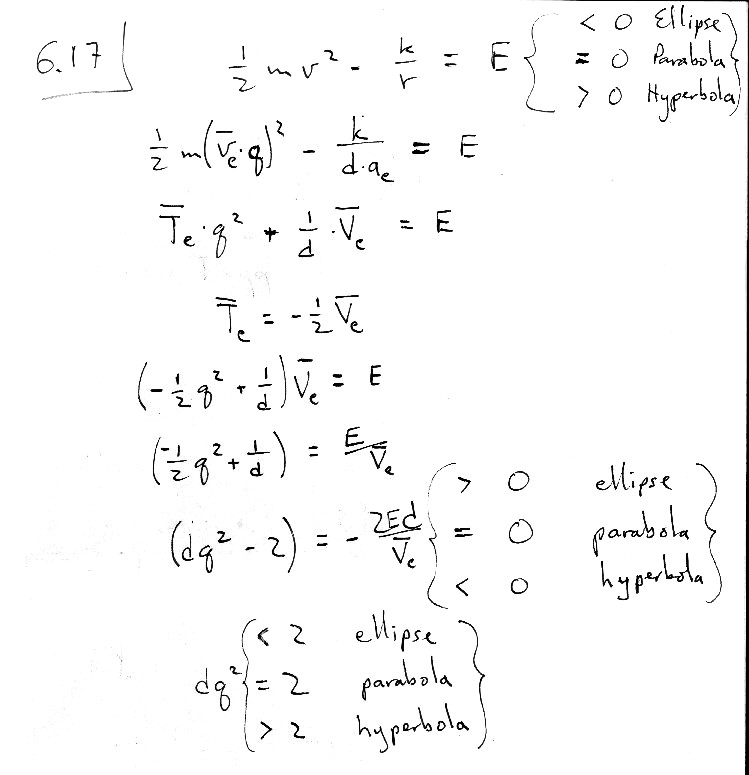 6.17 ½ m v² - k/r = E { < 0 Ellipse } { = 0 Parabola } { > 0 Hyperbola }
½ m(v̄ₑ·q)² - k/(d·aₑ) = E
T̄ₑ·q² + 1/d · V̄ₑ = E
T̄ₑ = -½ V̄ₑ
(-½ q² + 1/d) V̄ₑ = E
(-½ q² + 1/d) = E/V̄ₑ
(dq² - 2) = - 2Ed/V̄ₑ { > 0 ellipse } { = 0 parabola } { < 0 hyperbola }
dq² { < 2 ellipse } { = 2 parabola } { > 2 hyperbola }